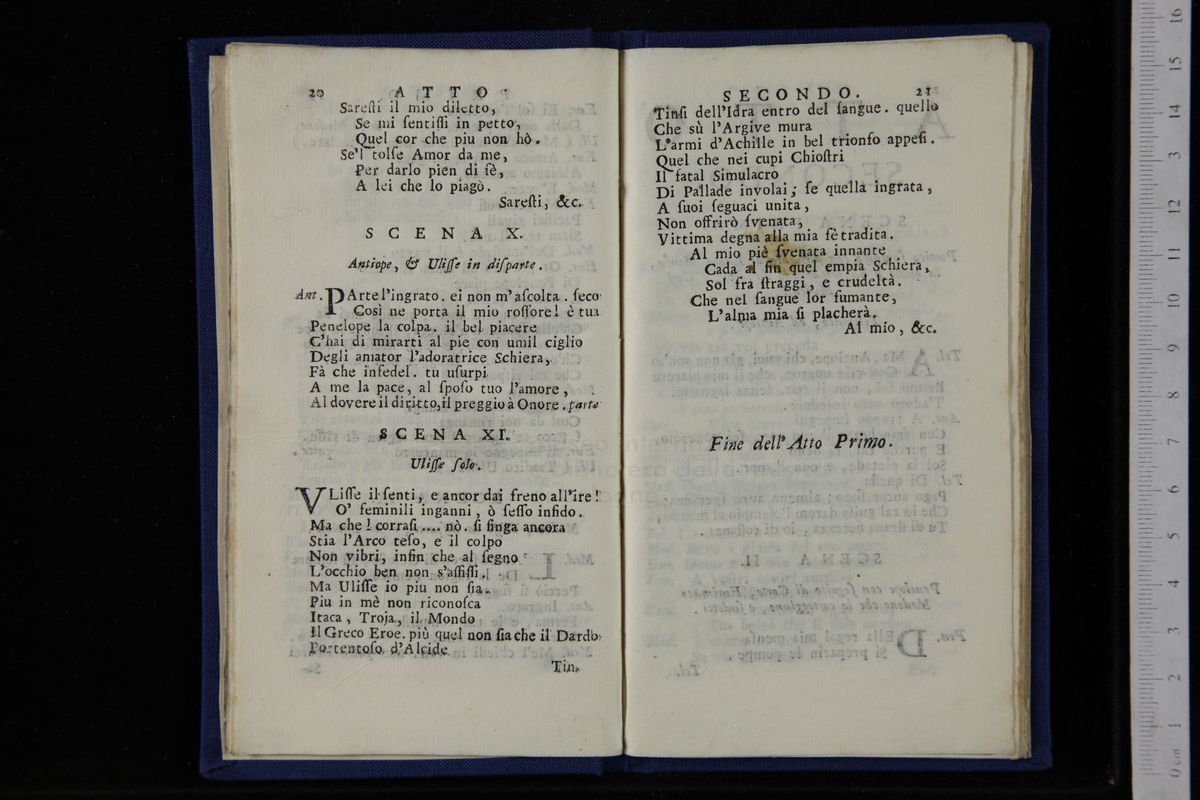 20 ATTO
Saresti il mio diletto,
Se mi sentissi in petto,
Quel cor che piu non hò.
Se'l tolse Amor da me,
Per darlo pien di fè,
A lei che lo piagò.
Saresti, &c.
SCENA X.
Antiope, & Ulisse in disparte.
Ant. PArte l'ingrato. ei non m'ascolta. seco
Così ne porta il mio rossore! è tua
Penelope la colpa. il bel piacere
C'hai di mirarti al pie con umil ciglio
Degli amator l'adoratrice Schiera,
Fà che infedel. tu usurpi
A me la pace, al sposo tuo l'amore,
Al dovere il diritto, il preggio à Onore. parte
SCENA XI.
Ulisse solo.
VLisse il senti, e ancor dai freno all'ire!
O' feminili inganni, ò sesso infido.
Ma che! corrasi .... nò. si finga ancora
Stia l'Arco teso, e il colpo
Non vibri, infin che al segno
L'occhio ben non s'affissi.
Ma Ulisse io piu non sia.
Piu in mè non riconosca
Itaca, Troja, il Mondo
Il Greco Eroe. più quel non sia che il Dardo
Portentoso d'Alcide
Tin-
SECONDO. 21
Tinsi dell'Idra entro del sangue. quello
Che sù l'Argive mura
L'armi d'Achille in bel trionfo appesi.
Quel che nei cupi Chiostri
Il fatal Simulacro
Di Pallade involai; se quella ingrata,
A suoi seguaci unita,
Non offrirò svenata,
Vittima degna alla mia fè tradita.
Al mio piè svenata innante
Cada al fin quel empia Schiera,
Sol fra straggi, e crudeltà.
Che nel sangue lor fumante,
L'alma mia si placherà.
Al mio, &c.
Fine dell'Atto Primo.